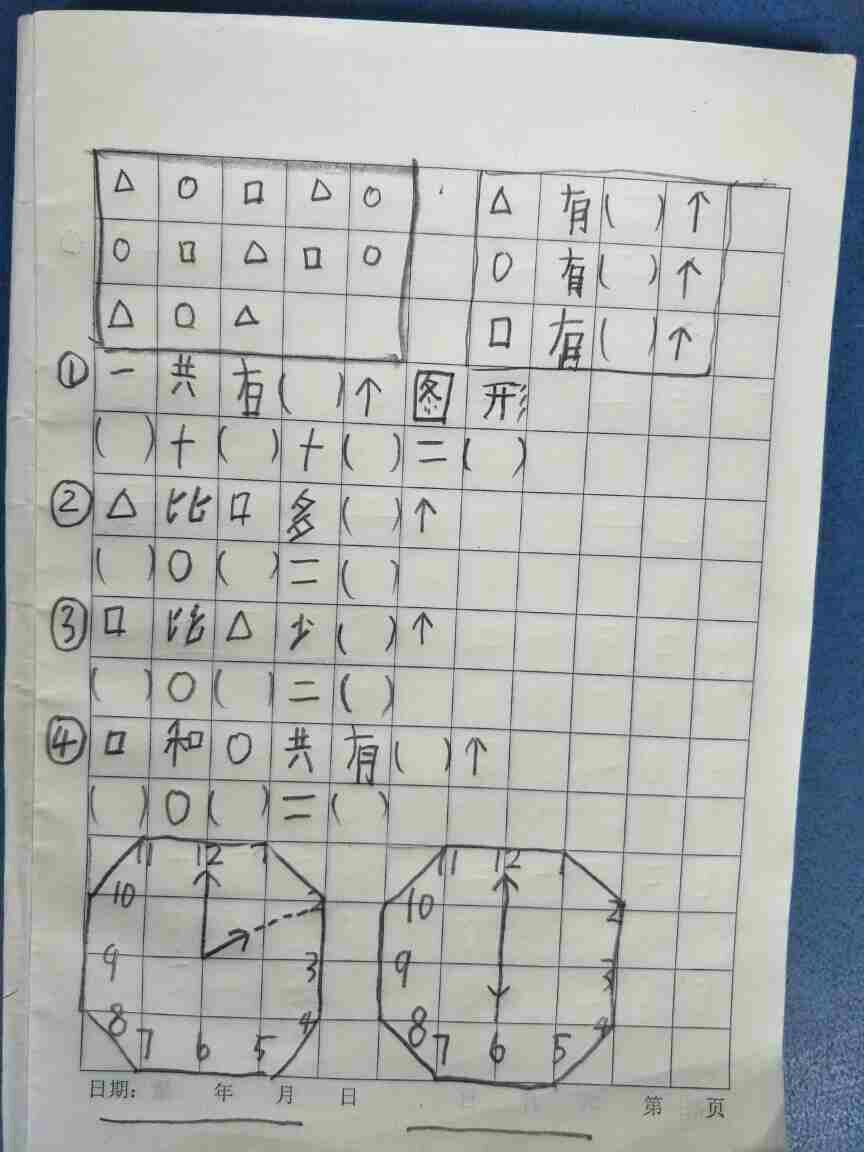 △ ○ □ △ ○
△ 有( )个
○ □ △ □ ○
○ 有( )个
△ ○ △
□ 有( )个
① 一共有( )个图形
( )+( )+( )=( )
② △比□多( )个
( )○( )=( )
③ □比△少( )个
( )○( )=( )
④ □和○共有( )个
( )○( )=( )
11 12 1
10 2
9 3
8 4
7 6 5
11 12 1
10 2
9 3
8 4
7 6 5
日期: 年 月 日
第 页